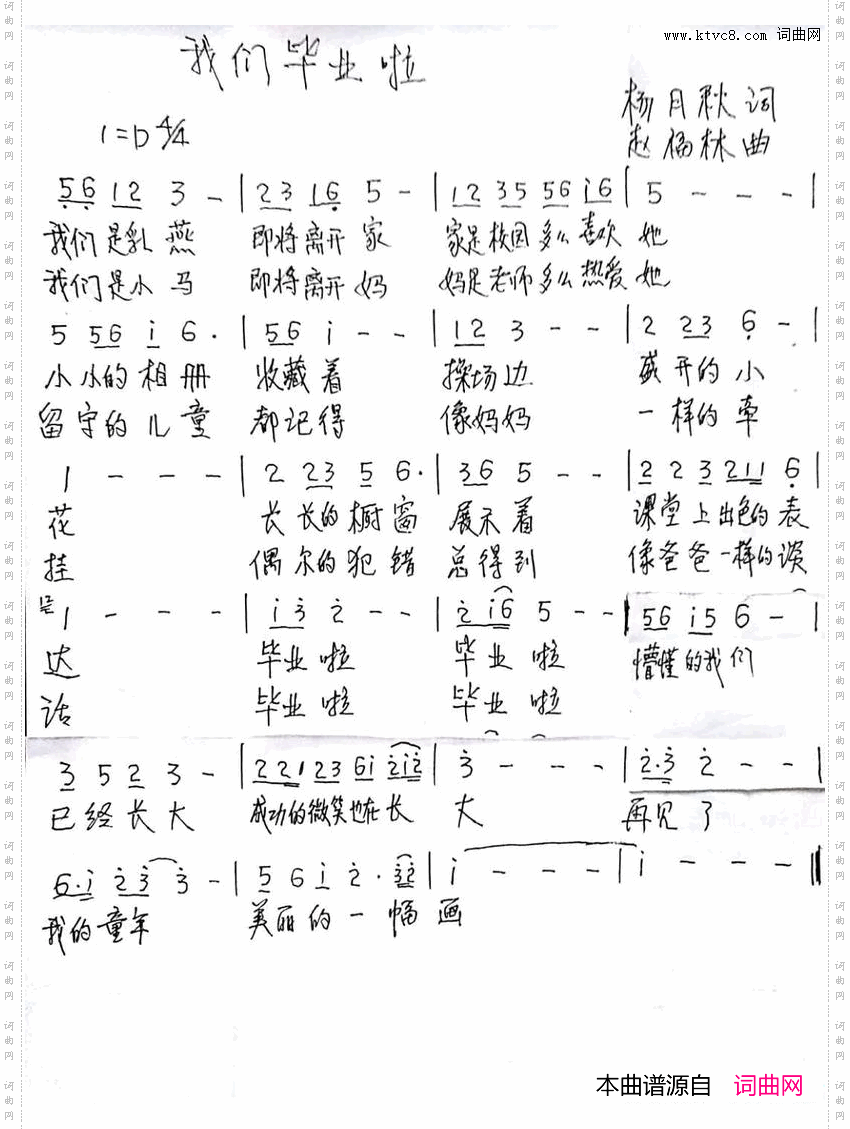 www.ktvc8.com 词曲网
我们毕业啦
杨月秋词
1=D 4/4
赵福林曲
5 6 1 2 3 - | 2 3 1 6 5 - | 1 2 3 5 5 6 i 6 | 5 - - - |
我们是乳燕 即将离开家 家是校园多么喜欢她
我们是小马 即将离开妈 妈是老师多么热爱她
5 5 6 i 6 · | 5 6 i - - | 1 2 3 - - | 2 2 3 6 - |
小小的相册 收藏着 操场边 盛开的小
留守的儿童 都记得 像妈妈 一样的牵
1 - - - | 2 2 3 5 6 · | 3 6 5 - - | 2 2 3 2 1 1 6 |
花 长长的橱窗 展示着 课堂上出色的表
挂 偶尔的犯错 总得到 像爸爸一样的谈
1 - - - | i 3 2 - - | 2 i 6 5 - - | 5 6 i 5 6 - |
达 毕业啦 毕业啦 懵懂的我们
话 毕业啦 毕业啦
3 5 2 3 - | 2 2 1 2 3 6 i 2 i 2 | 3 - - - | 2 · 3 2 - - |
已经长大 成功的微笑也在长 大 再见了
6 · i 2 3 3 - | 5 6 i 2 · 3 2 | i - - - | i - - - ‖
我的童年 美丽的一幅画
本曲谱源自 词曲网